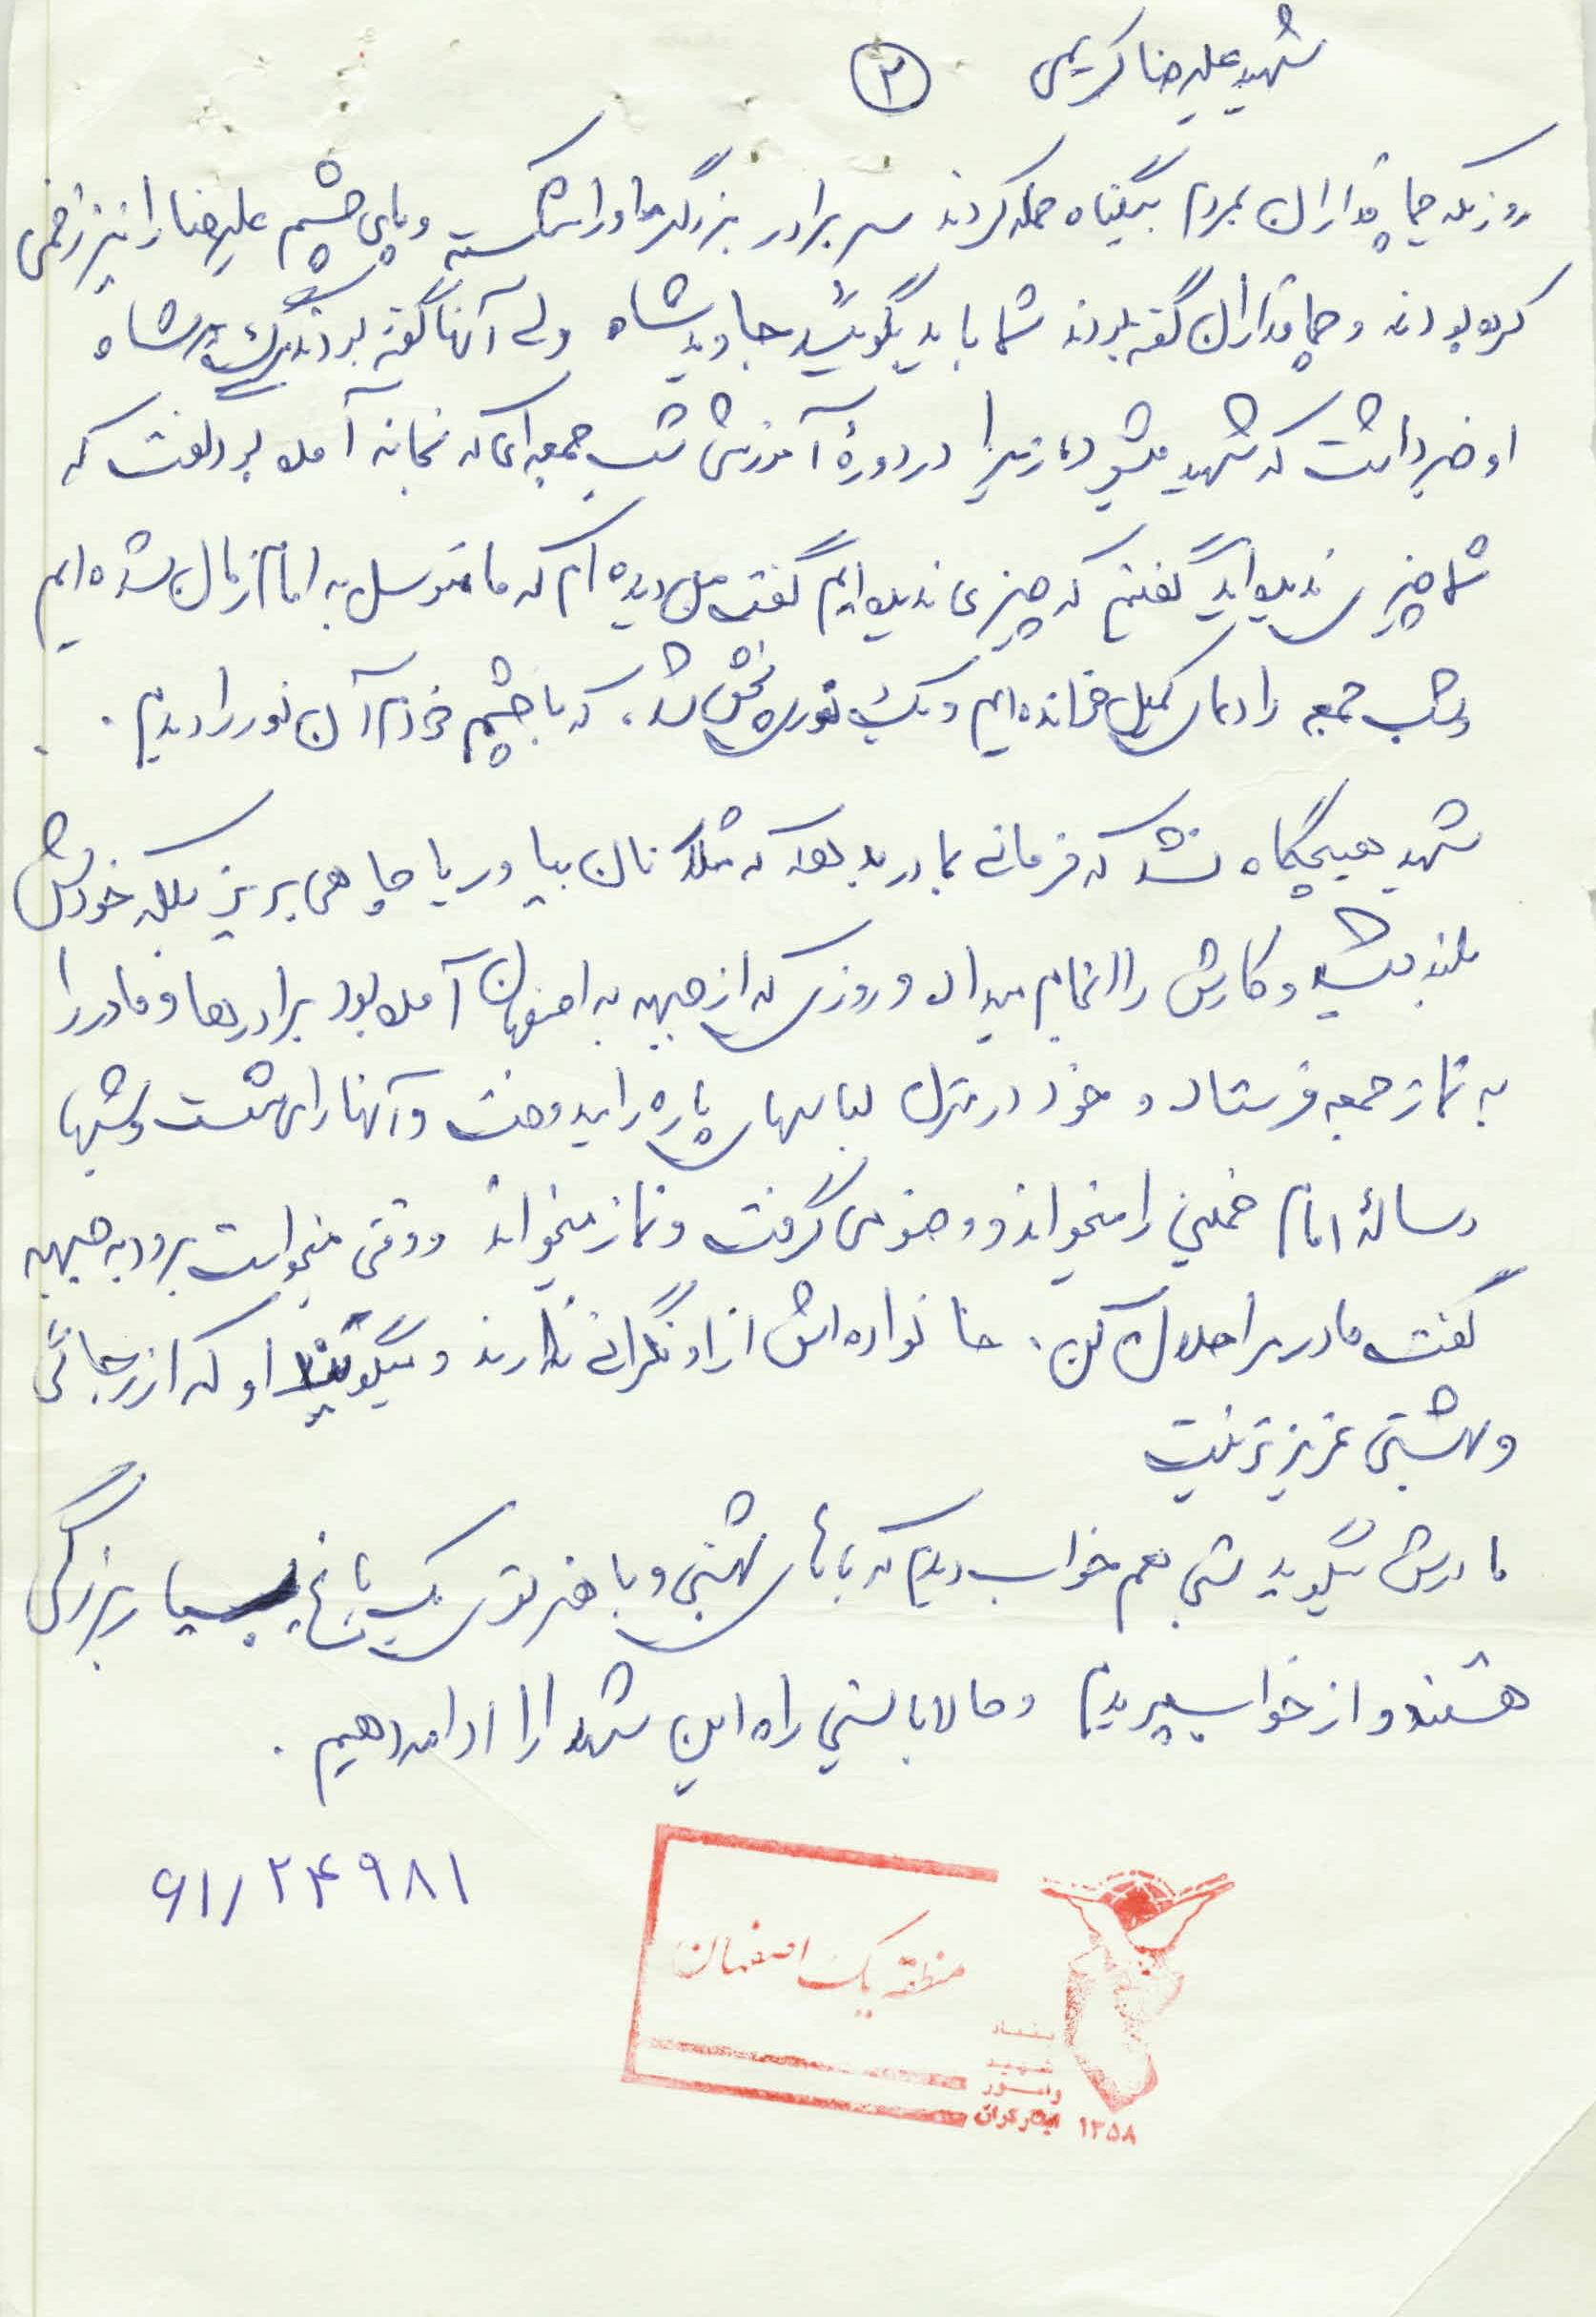 شهید علیرضا کریمی ۲
روزیکه چماقداران بمردم بیگناه حمله کردند سر برادر بزرگتر او را شکسته و پای چشم علیرضا را نیز زخمی
کرده بودند و چماقداران گفته بودند شما باید بگوئید جاوید شاه ولی آنها گفته بودند مرگ بر شاه
او خبر داشت که شهید میشود، زیرا در دورهٔ آموزش شب جمعه‌ای که بخانه آمده بود گفت که
شما چیزی ندیده‌اید گفتیم که چیزی ندیده‌ایم گفت من دیده‌ام که ما متوسل به امام زمان شده‌ایم
و شب جمعه را دعای کمیل خوانده‌ایم و یک نوری پخش شد، که با چشم خودم آن نور را دیدم.
شهید هیچگاه نشد که فرمانی بمادر بدهد که مثلا نان بیاور یا چاهی بریز بلکه خودش
بلند میشد و کارش را انجام میداد و روزی که از جبهه به اصفهان آمده بود برادرها و مادر را
به نماز جمعه فرستاد و خود در منزل لباسهای پاره را میدوخت و آنها را می‌شست و شبها
رسالهٔ امام خمینی را میخواند و وضو می گرفت و نماز میخواند و وقتی میخواست برود به جبهه
گفت مادر مرا حلال کن. خانواده‌اش از او نگرانی ندارند و میگویند او که از رجائی
و بهشتی عزیزتر نیست
مادرش میگوید شبی هم خواب دیدم که با آقای بهشتی و باهنر توی یک باغ بسیار بزرگی
هستند و از خواب پریدم و حالا بایستی راه این شهدا را ادامه دهیم.
۶۱/۲۴۹۸۱
منطقه یک اصفهان
بنیاد
شهید
و امور
ایثارگران ۱۳۵۸